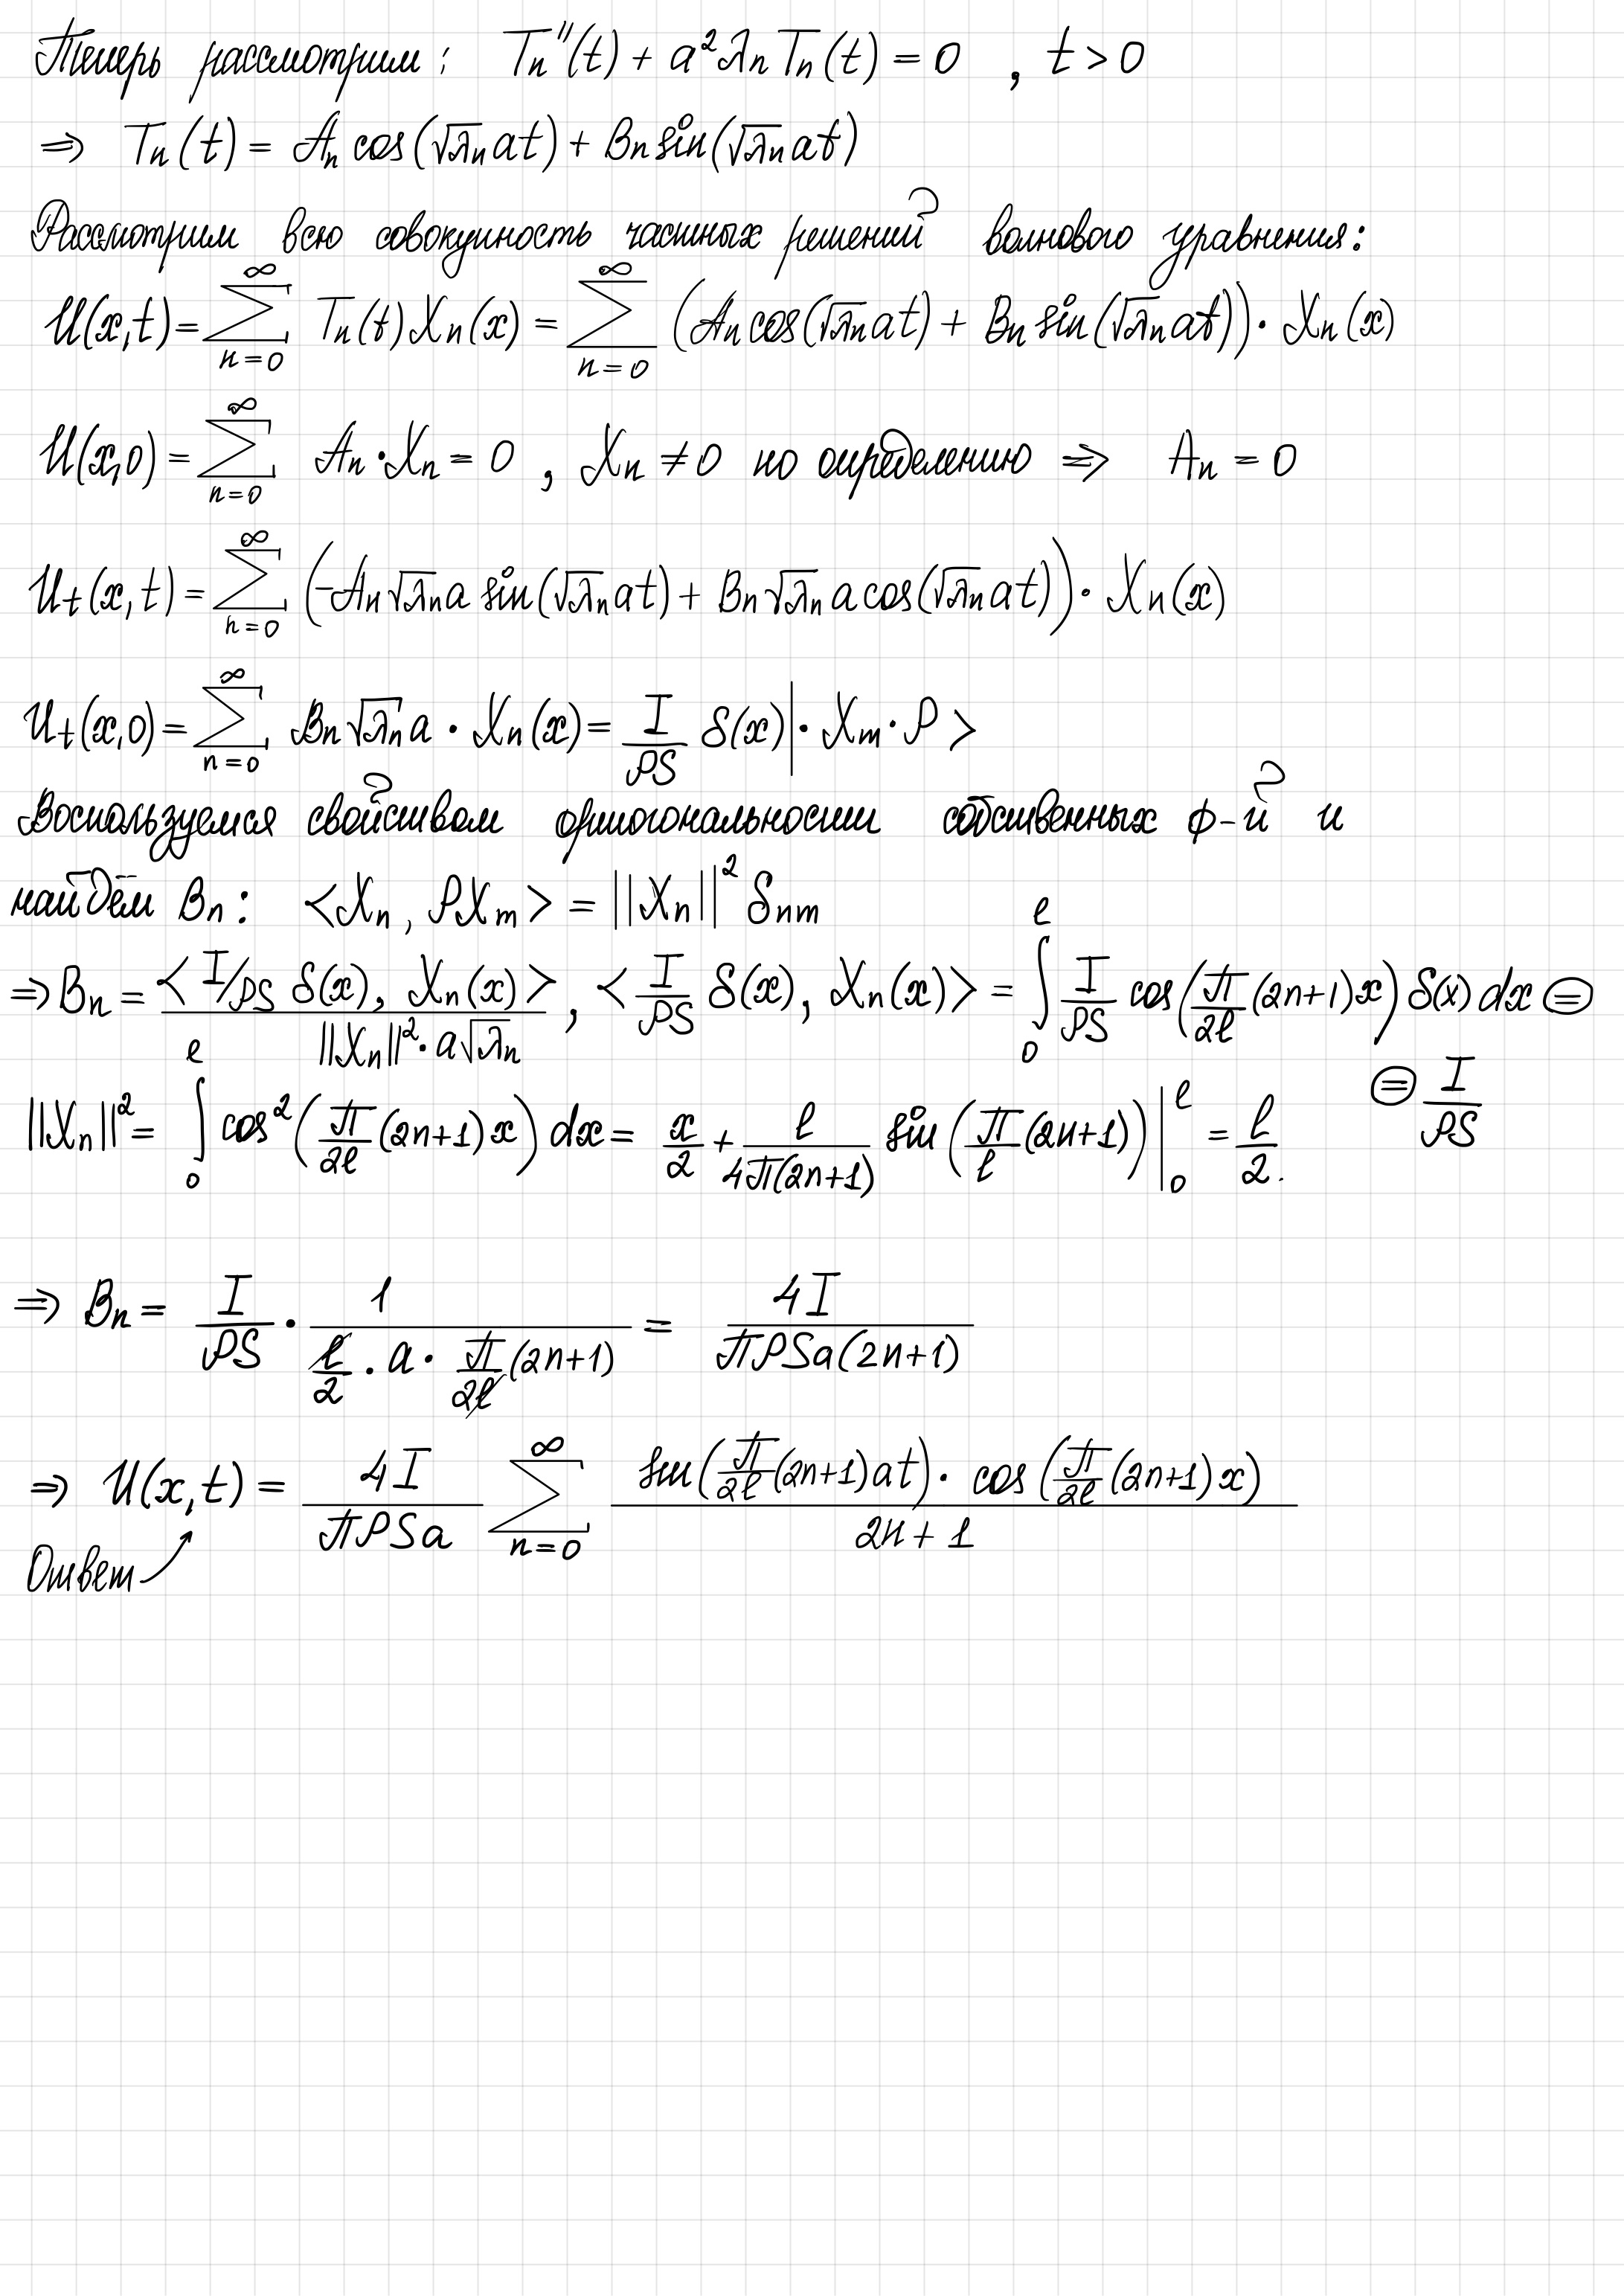 Теперь рассмотрим: Tn''(t) + a²λnTn(t) = 0 , t > 0
⇒ Tn(t) = An cos(√λn at) + Bn sin(√λn at)
Рассмотрим всю совокупность частных решений волнового уравнения:
U(x,t) = ∑_{n=0}^{∞} Tn(t)Xn(x) = ∑_{n=0}^{∞} (An cos(√λn at) + Bn sin(√λn at)) · Xn(x)
U(x,0) = ∑_{n=0}^{∞} An · Xn = 0 , Xn ≠ 0 по определению ⇒ An = 0
Ut(x,t) = ∑_{n=0}^{∞} (-An√λn a sin(√λn at) + Bn√λn a cos(√λn at)) · Xn(x)
Ut(x,0) = ∑_{n=0}^{∞} Bn√λn a · Xn(x) = I/ρS δ(x)| · Xm · ρ >
Воспользуемся свойством ортогональности собственных ф-й и
найдём Bn: <Xn, ρXm> = ||Xn||² δnm
⇒ Bn = <I/ρS δ(x), Xn(x)> / ||Xn||² · a√λn , <I/ρS δ(x), Xn(x)> = ∫_0^l I/ρS cos(π/2l (2n+1)x) δ(x) dx ⊜
⊜ I/ρS
||Xn||² = ∫_0^l cos²(π/2l (2n+1)x) dx = x/2 + l/4π(2n+1) sin(π/l (2n+1)) |_0^l = l/2.
⇒ Bn = I/ρS · 1 / (l/2 · a · π/2l (2n+1)) = 4I / πρSa(2n+1)
⇒ U(x,t) = 4I/πρSa ∑_{n=0}^{∞} sin(π/2l (2n+1)at) · cos(π/2l (2n+1)x) / 2n+1
Ответ